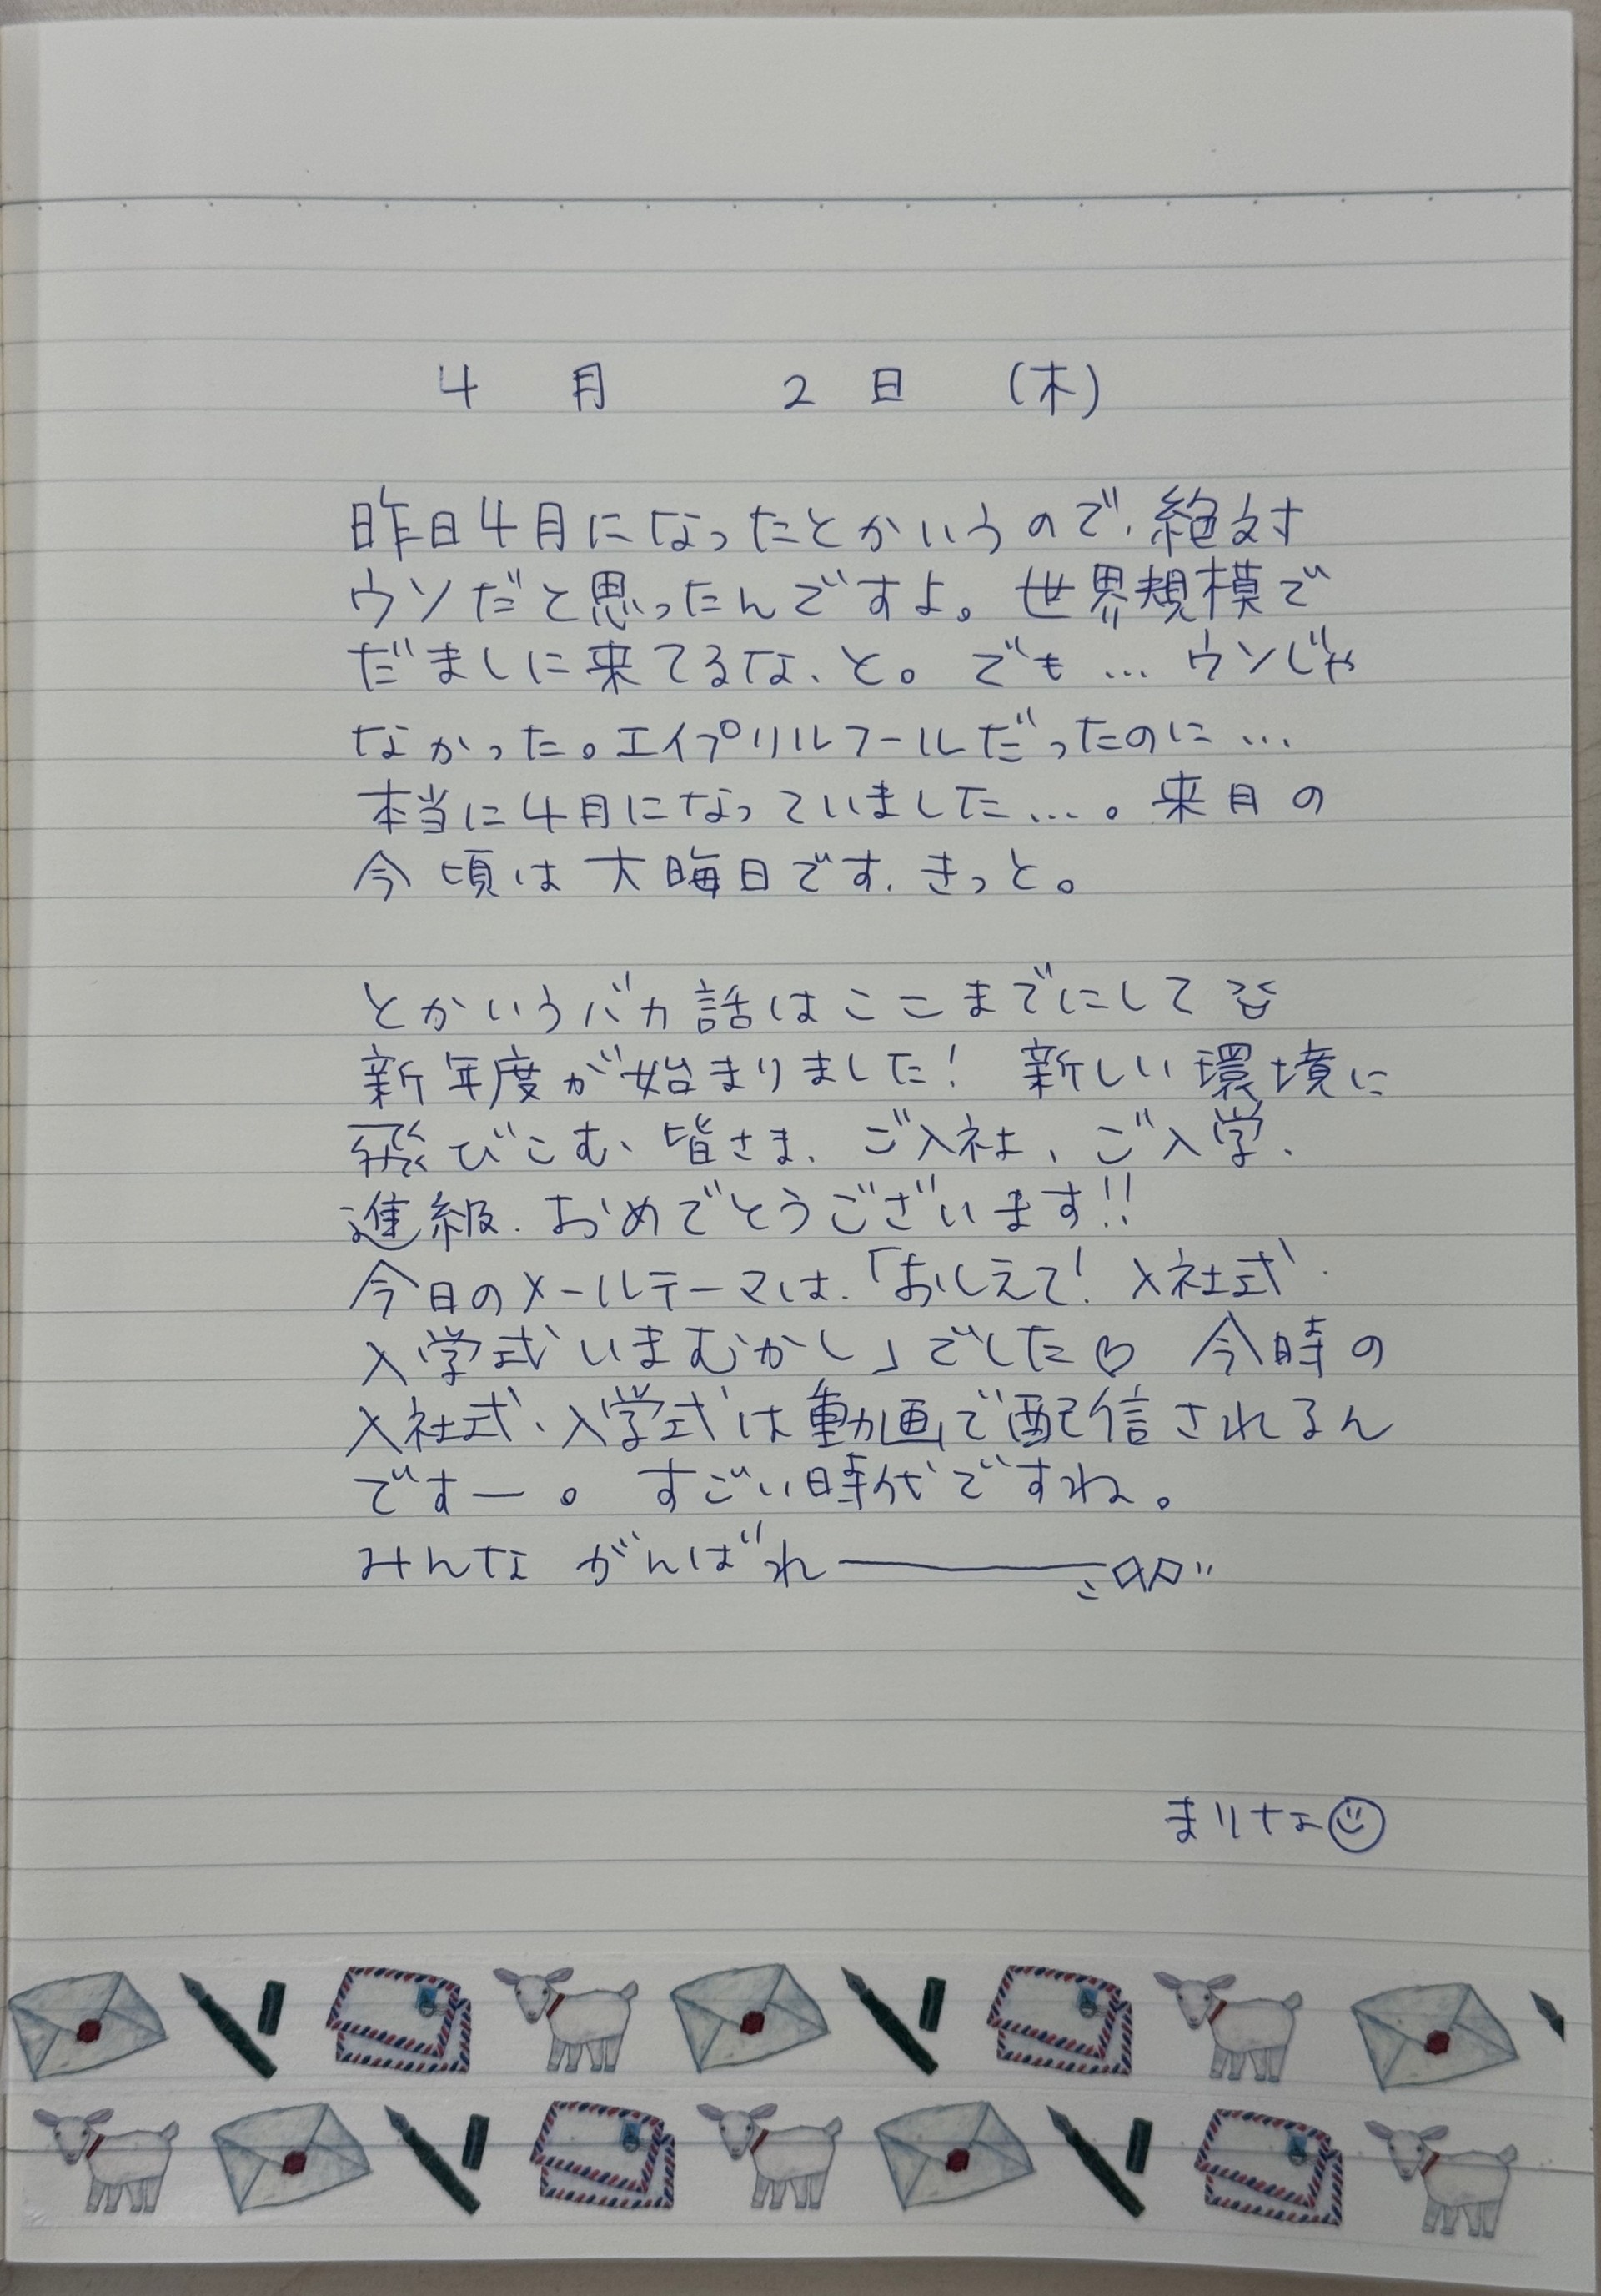 4月 2日 (木)
昨日4月になったとかいうので、絶対
ウソだと思ったんですよ。世界規模で
だましに来てるな、と。でも…ウソじゃ
なかった。エイプリルフールだったのに…
本当に4月になっていました…。来月の
今頃は大晦日です、きっと。
とかいうバカ話はここまでにして
新年度が始まりました! 新しい環境に
飛びこむ、皆さま、ご入社、ご入学、
進級、おめでとうございます!!
今日のメールテーマは、「おしえて! 入社式・
入学式いまむかし」でした♡ 今時の
入社式・入学式は動画で配信されるん
ですー。すごい時代ですね。
みんな がんばれー
まりなな☺